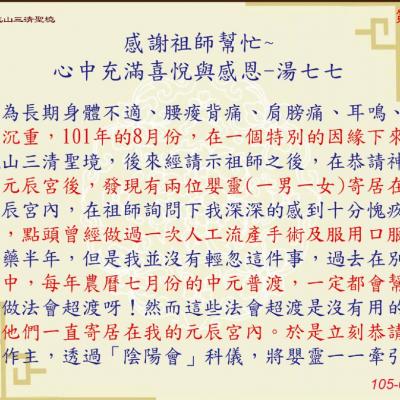 山三清聖境
感謝祖師幫忙~
心中充滿喜悅與感恩-湯七七
為長期身體不適、腰痠背痛、肩膀痛、耳鳴、
沉重，101年的8月份，在一個特別的因緣下來
山三清聖境，後來經請示祖師之後，在恭請神
元辰宮後，發現有兩位嬰靈(一男一女)寄居在
辰宮內，在祖師詢問下我深深的感到十分愧疚
，點頭曾經做過一次人工流產手術及服用口服
藥半年，但是我並沒有輕忽這件事，過去在別
中，每年農曆七月份的中元普渡，一定都會幫
做法會超渡呀！然而這些法會超渡是沒有用的
他們一直寄居在我的元辰宮內。於是立刻恭請
作主，透過「陰陽會」科儀，將嬰靈一一牽引
105-